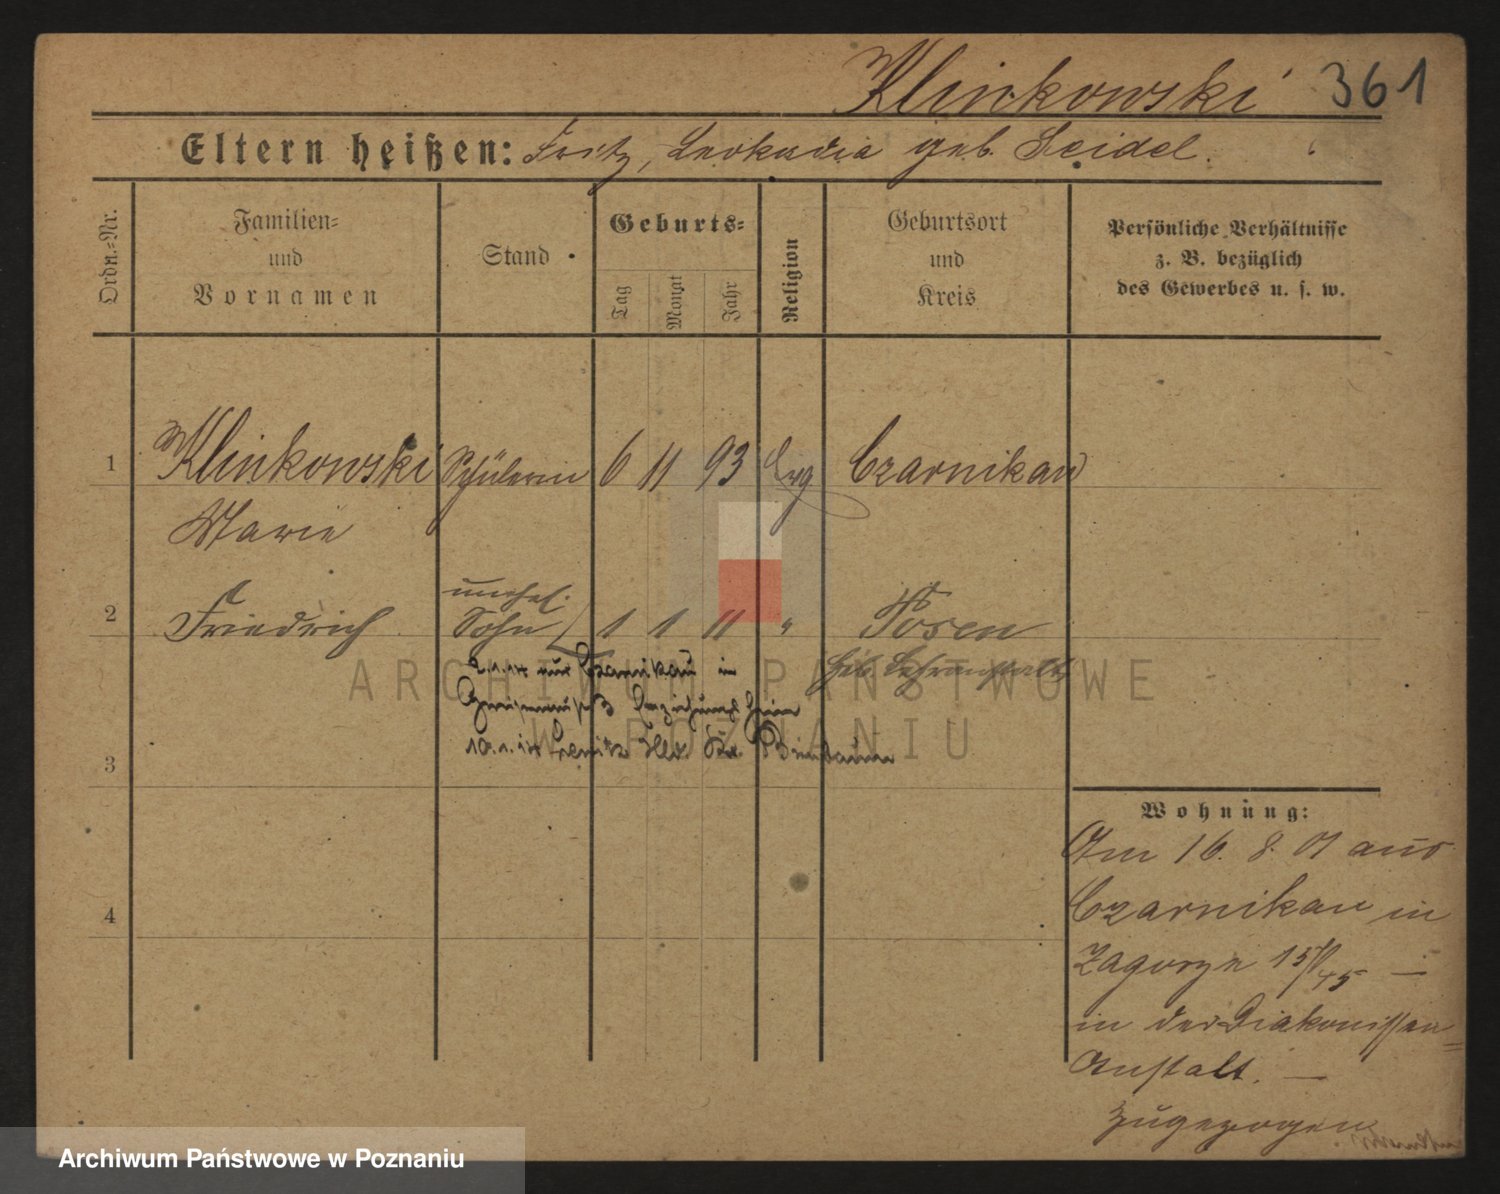 Klinkowski 361
Eltern heißen: Fritz, Leokadia geb. Seidel.
Ordn.=Nr.
Familien=
und
Vornamen
Stand
Geburts=
Tag
Monat
Jahr
Religion
Geburtsort
und
Kreis
Persönliche Verhältnisse
z. B. bezüglich
des Gewerbes u. s. w.
1 Klinkowski Schülerin 6 11 93 Evg Czarnikau
Marie
unehel.
2 Friedrich Sohn 1 1 11 " Posen
Czarnikau in
Erziehungsheim
3 10.1.14 Kr. Birnbaum
Wohnung:
Am 16. 8. 01 aus
4 Czarnikau in
Zagorze 15/
in der Diakonissen=
Anstalt. —
zugezogen
ARCHIWUM PAŃSTWOWE
W POZNANIU
Archiwum Państwowe w Poznaniu